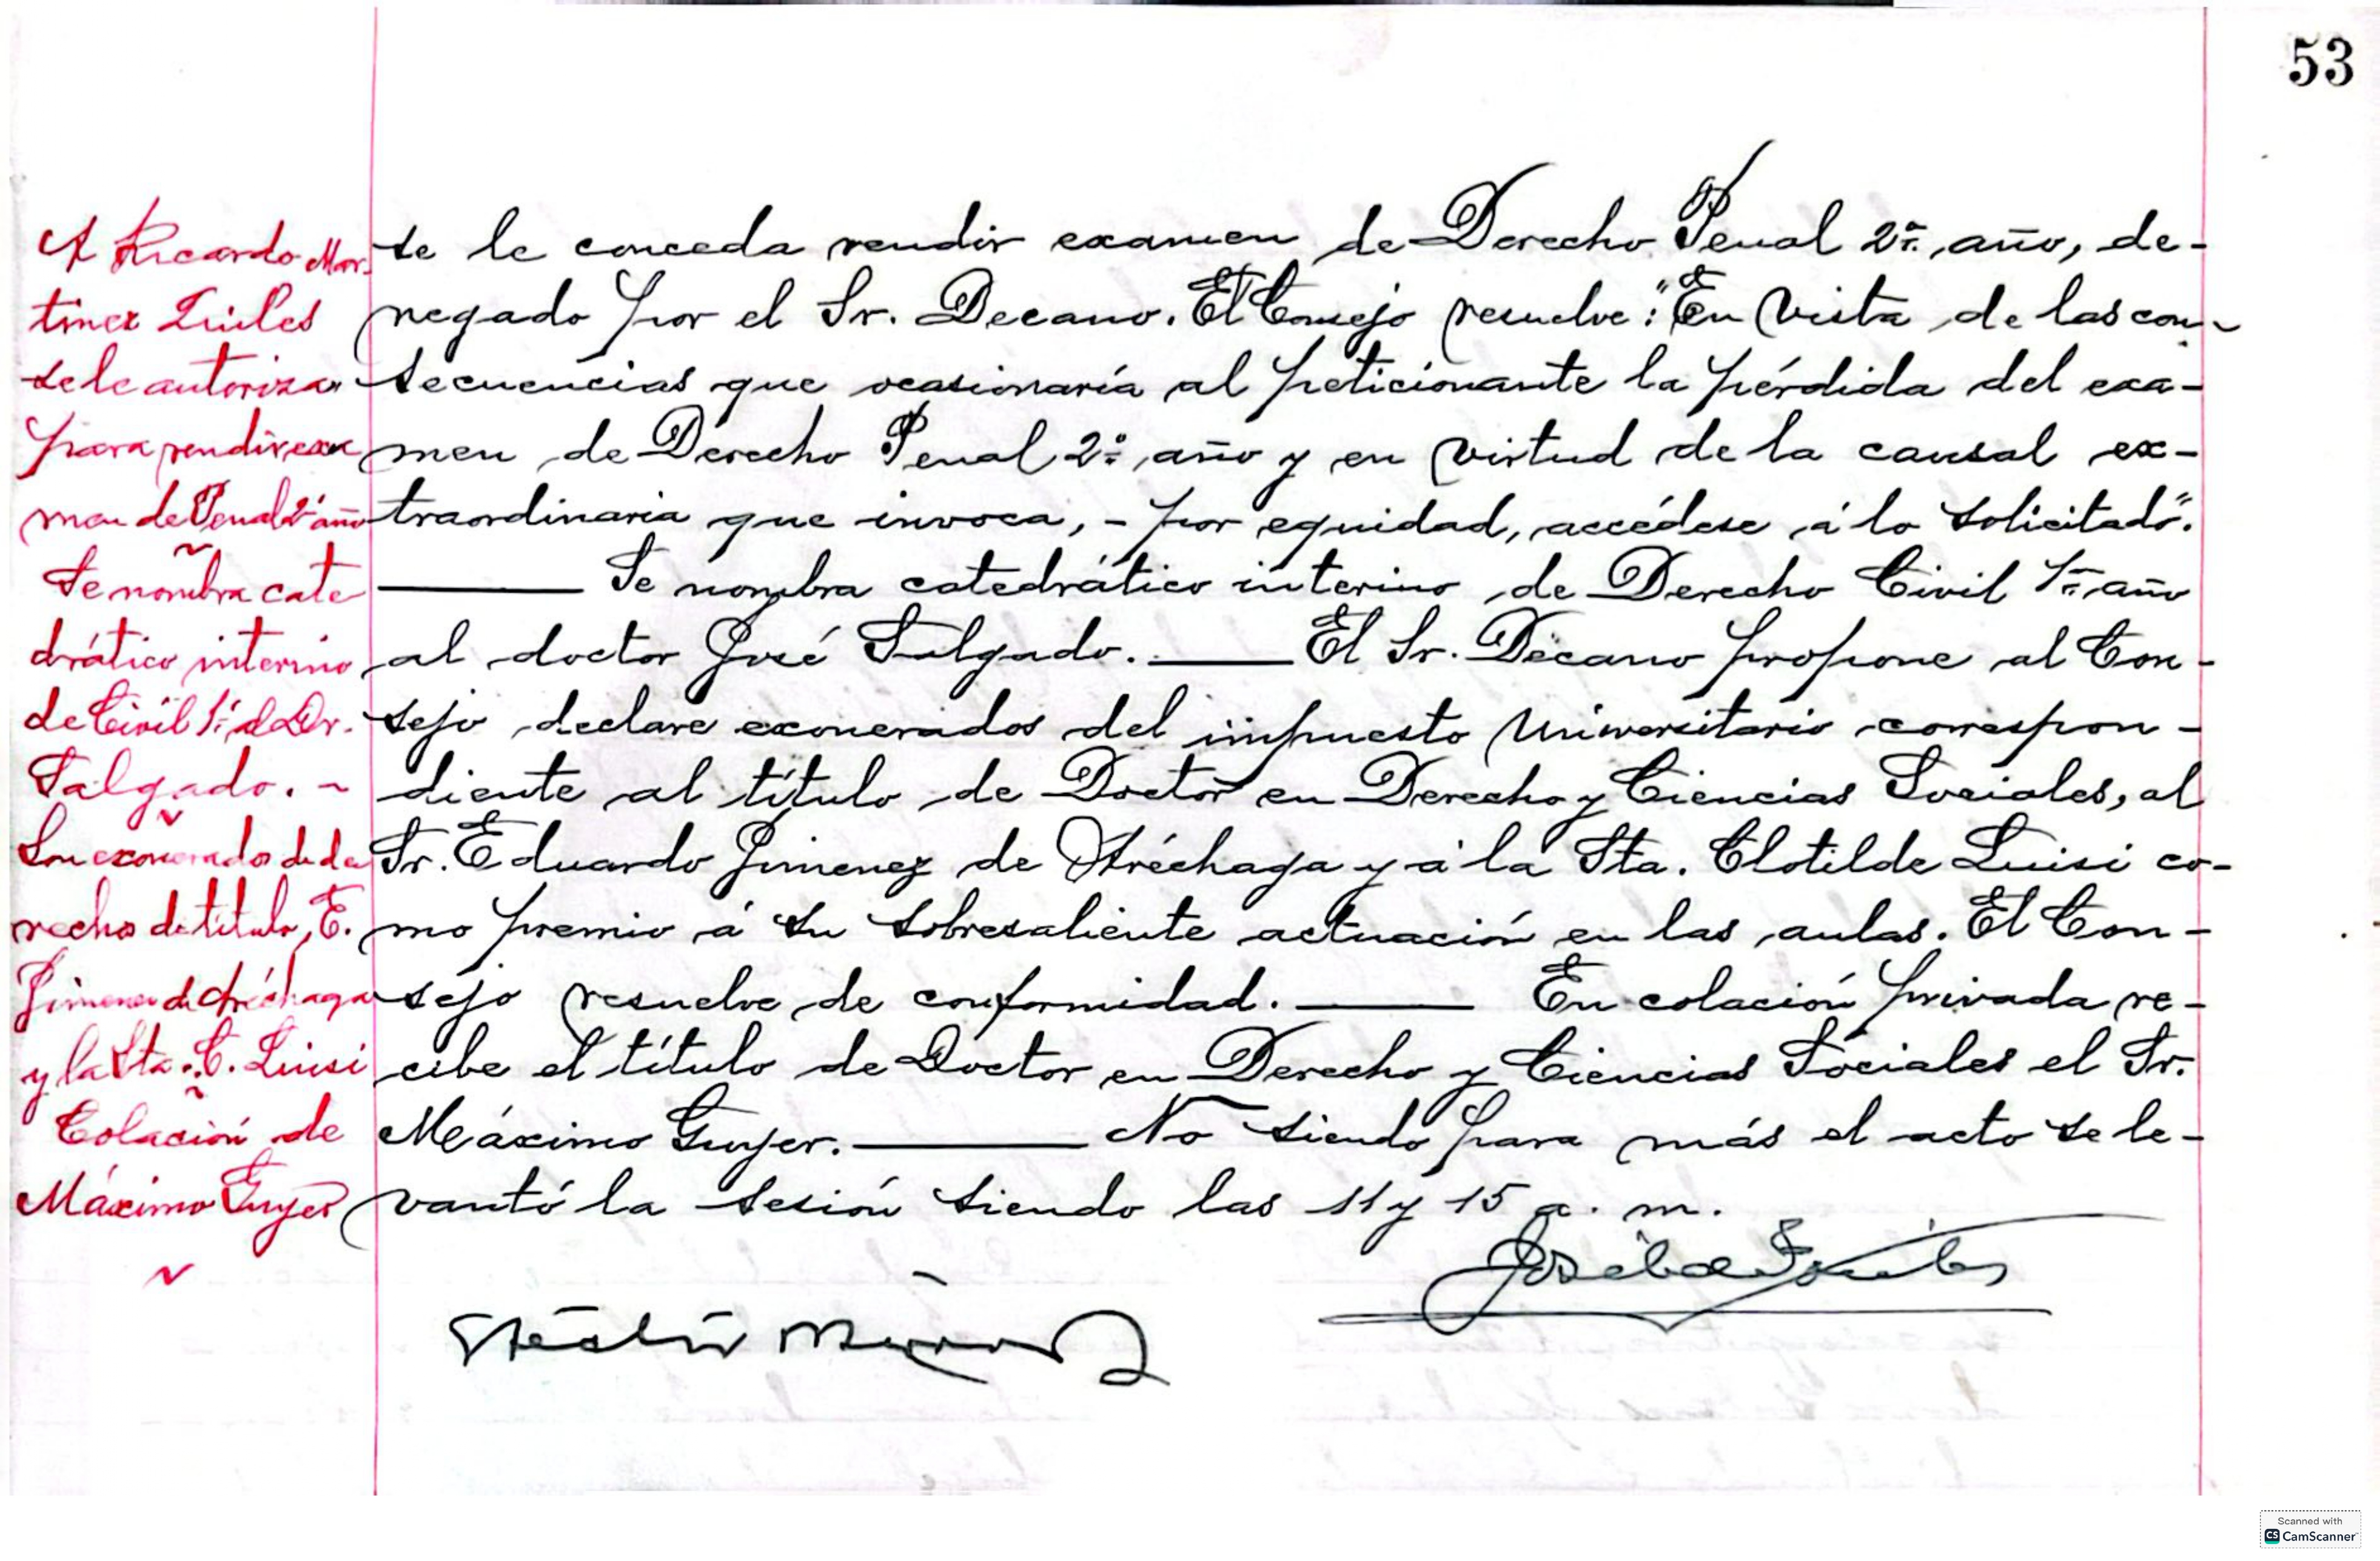 53
A Ricardo Mar-
tinez Quiles
se le autoriza
para rendir exa
men de Penal 2º año
Se nombra cate
drático interino
de Civil 1º al Dr.
Salgado.
Son exonerados de de
rechos de título, E.
Jimenez de Aréchaga
y la Sta. C. Luisi
Colación de
Máximo Guyer
se le conceda rendir examen de Derecho Penal 2º. año, de-
negado por el Sr. Decano. El Consejo resuelve: "En vista de las con-
secuencias que ocasionaría al peticionante la pérdida del exa-
men de Derecho Penal 2º año y en virtud de la causal ex-
traordinaria que invoca, - por equidad, accédese á lo solicitado".
——— Se nombra catedrático interino de Derecho Civil 1er. año
al doctor José Salgado. ——— El Sr. Decano propone al Con-
sejo declare exonerados del impuesto Universitario correspon-
diente al título de Doctor en Derecho y Ciencias Sociales, al
Sr. Eduardo Jimenez de Aréchaga y á la Sta. Clotilde Luisi co-
mo premio á su sobresaliente actuación en las aulas. El Con-
sejo resuelve de conformidad. ——— En colación privada re-
cibe el título de Doctor en Derecho y Ciencias Sociales el Sr.
Máximo Guyer. ——— No siendo para más el acto se le-
vantó la sesión siendo las 11 y 15 a. m.
Scanned with
CS CamScanner